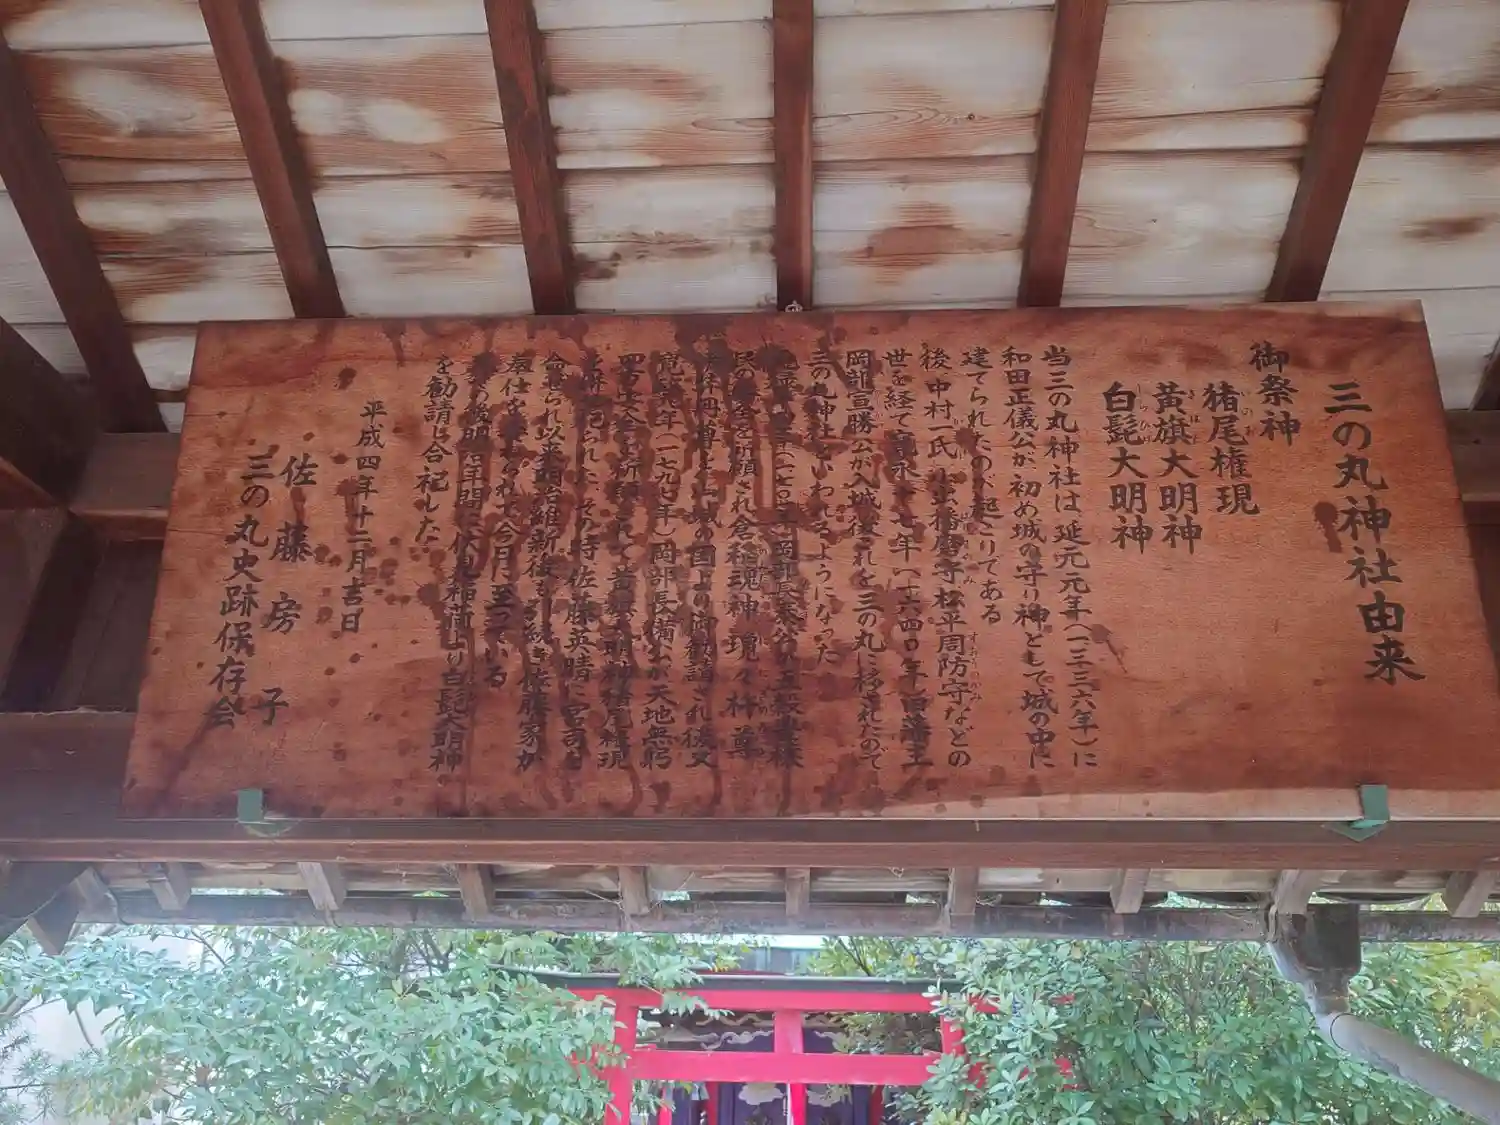 三の丸神社由来
御祭神
猪尾権現
いのお
黄旗大明神
きはた
白髭大明神
しらひげ
当三の丸神社は延元元年(一三三六年)に
和田正儀公が初め城の守り神として城の中に
建てられたのが起こりである
後 中村一氏 小出播磨守 松平周防守などの
世を経て寛永十七年(一六四〇年)旧藩主
岡部宣勝公が入城後これを三の丸に移されたので
三の丸神社といわれるようになった
岡部長泰公が五穀豊穣
民の安全を祈願され倉稲魂神
国より御勧請され後又
寛政九年(一七九七年)岡部長備公が天地無窮
黄旗大明神猪尾権現
その時佐藤英晴に宮司を
命ぜられ以来明治維新後も引続き佐藤家が
奉仕を 今日に至っている
その後明治年間に伏見稲荷より白髭大明神
を勧請し合祀した
平成四年十二月吉日
佐藤房子
三の丸史跡保存会